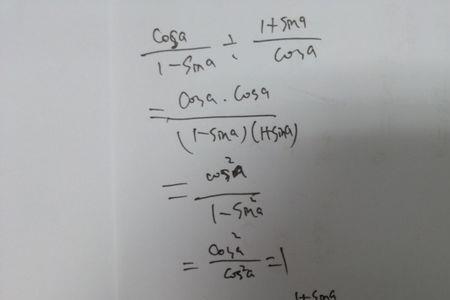 cosa/1-sina ÷ 1+sina/cosa
= cosa·cosa/(1-sina)(1+sina)
= cos²a/1-sin²a
= cos²a/cos²a = 1
1+sina